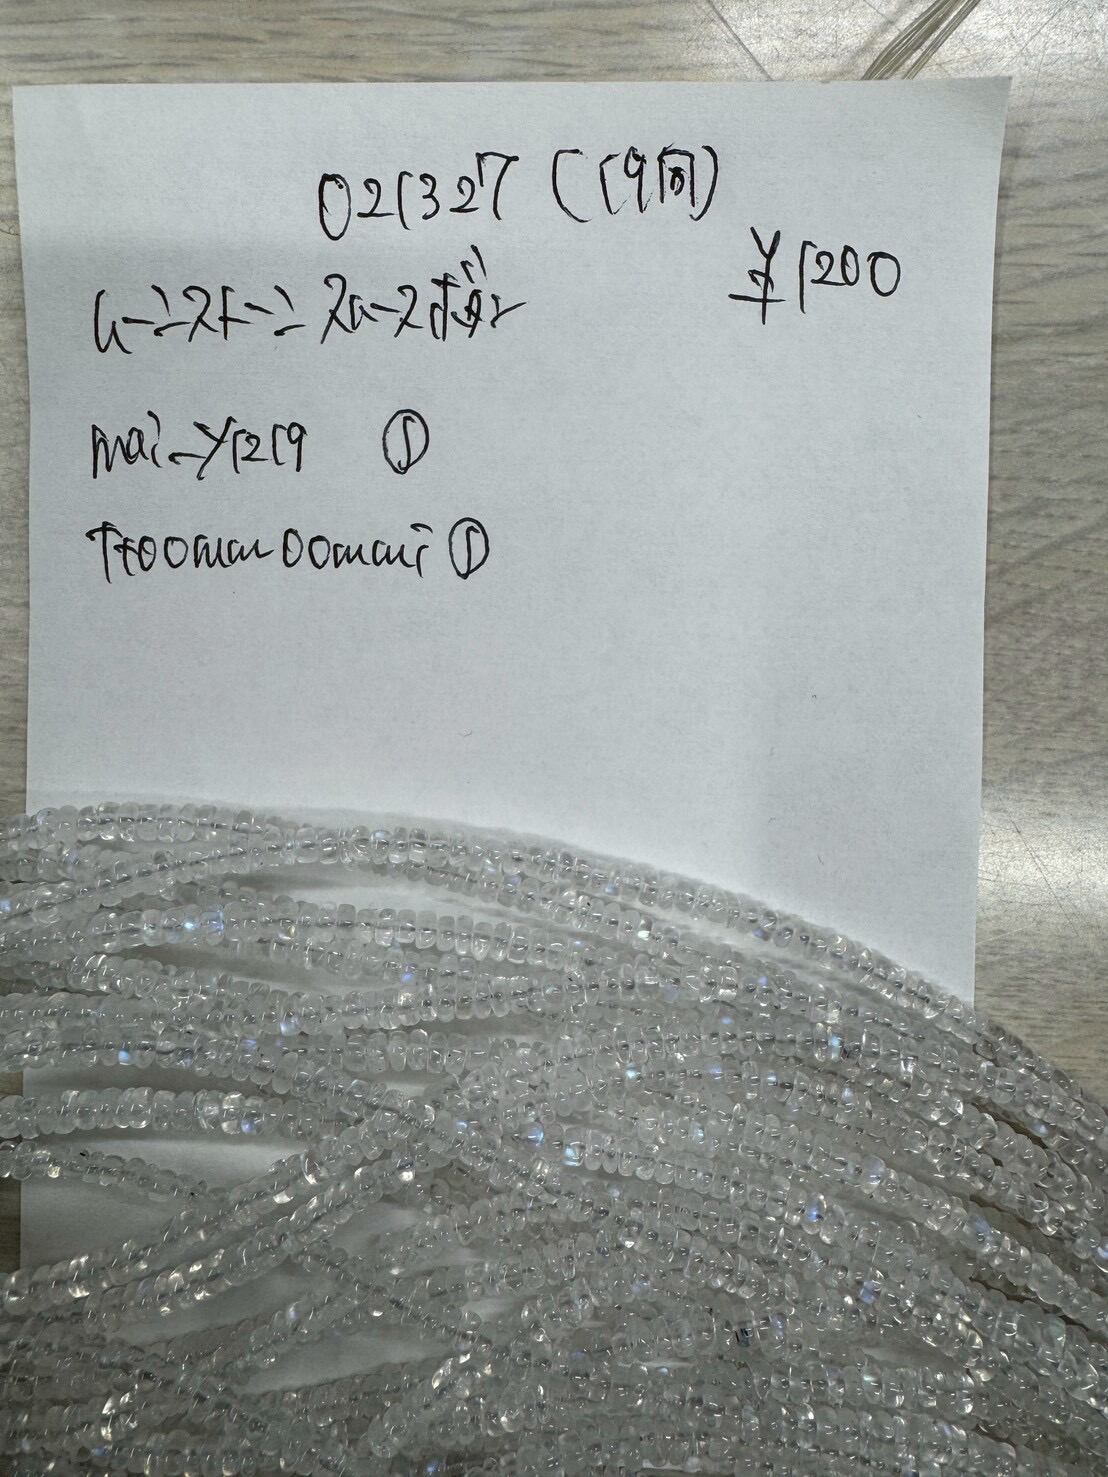 021327 (19間)
¥1200
ムーンストーン スムースボタン
mai_y1219 ①
tt00mm00mmi ①